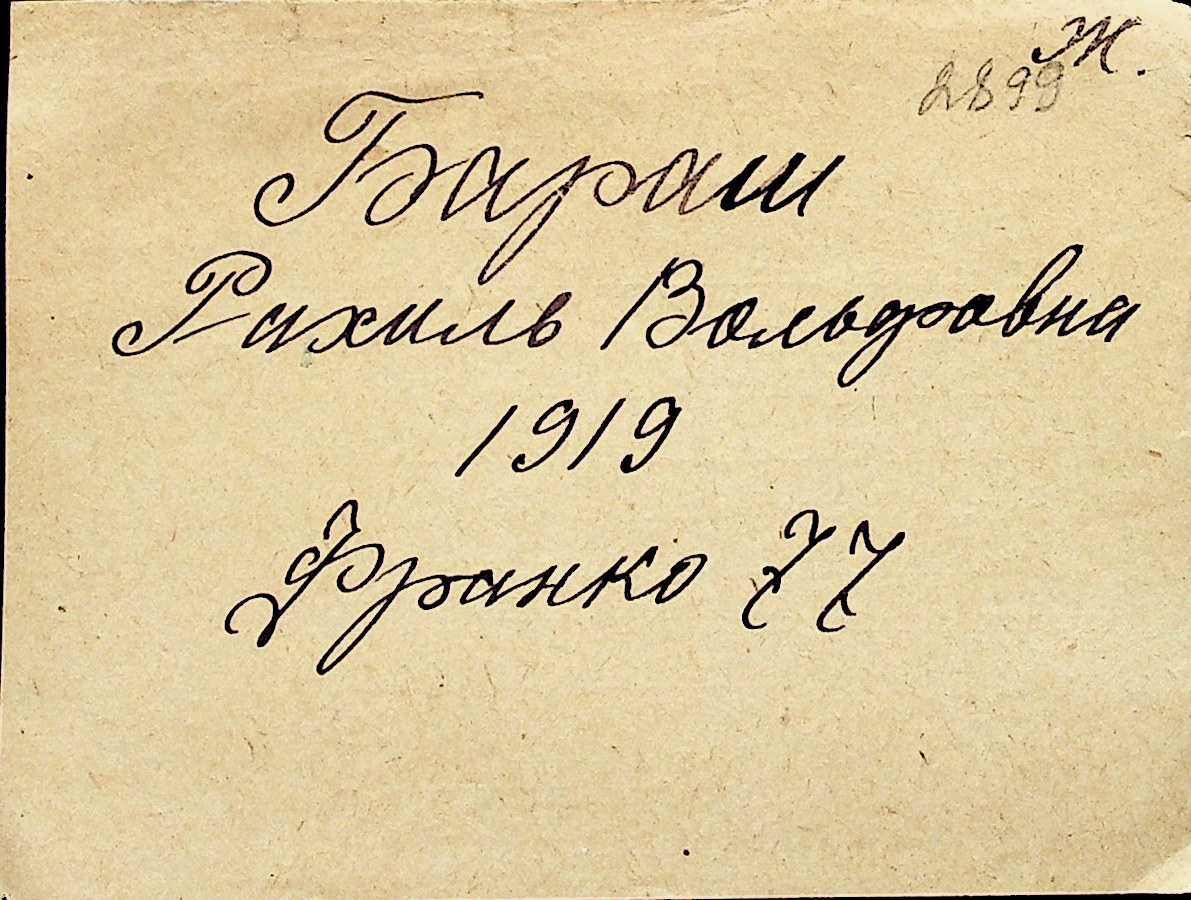 Ж.
2899
Бараш
Рахиль Вольфовна
1919
Франко 77